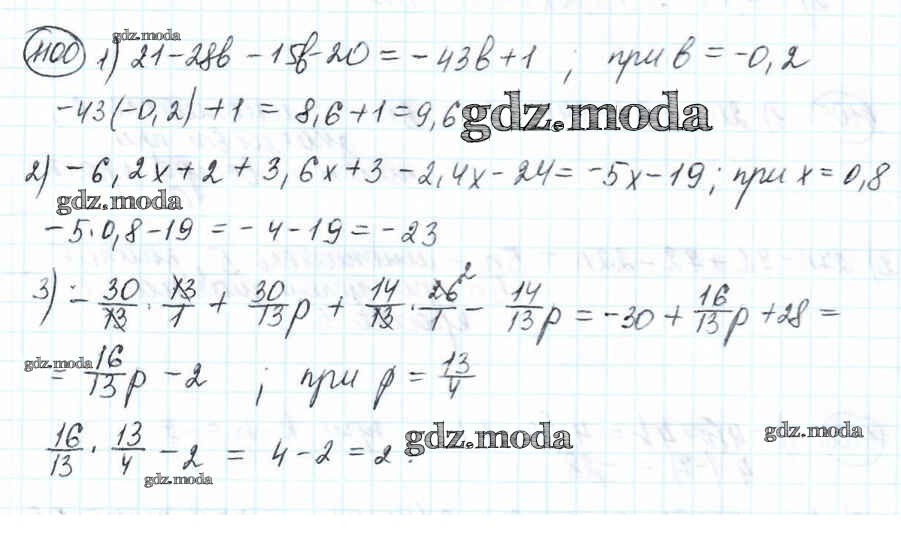 gdz.moda
1100 1) 21-28в -15в-20 = -43в+1 ; при в = -0,2
-43(-0,2)+1 = 8,6+1=9,6
gdz.moda
2) -6,2x+2+3,6x+3-2,4x-24=-5x-19; при x=0,8
gdz.moda
-5·0,8-19 = -4-19=-23
3) -30/13 · 13/1 + 30/13 p + 14/13 · 26/1 2 - 14/13 p = -30 + 16/13 p + 28 =
gdz.moda
= 16/13 p - 2 ; при p = 13/4
16/13 · 13/4 - 2 = 4-2=2.
gdz.moda
gdz.moda
gdz.moda